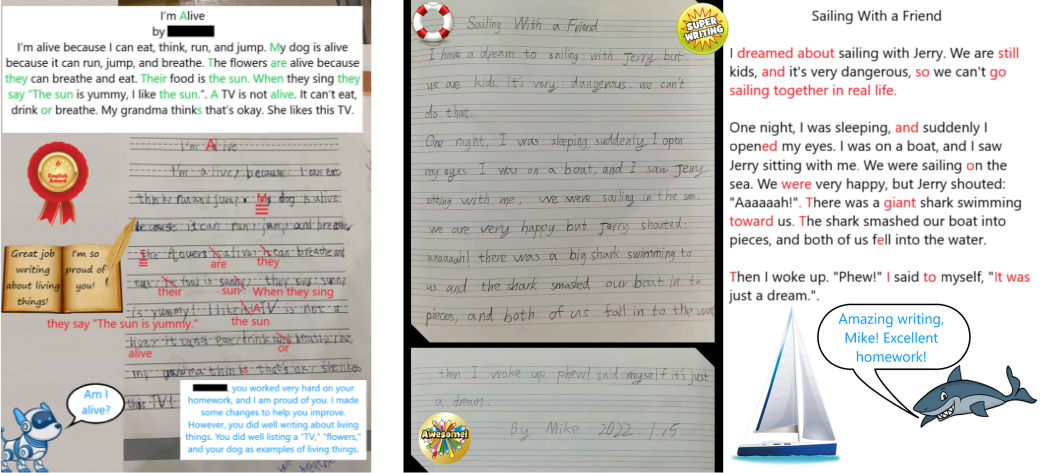 I'm Alive
by
I'm alive because I can eat, think, run, and jump. My dog is alive
because it can run, jump, and breathe. The flowers are alive because
they can breathe and eat. Their food is the sun. When they sing they
say "The sun is yummy, I like the sun.". A TV is not alive. It can't eat,
drink or breathe. My grandma thinks that's okay. She likes this TV.
I'm Alive
I'm alive because I can eat
think run and jump. My dog is alive
because it can run jump and breathe
the flowers alive can breathe and
are
they
eat food is sun they sing sunny
their
sun
When they sing
is yummy! I like A TV is not a
they say "The sun is yummy."
the sun
liver it want eat drink and breathe
alive
or
my grandma thinks that's ok she likes
this TV!
English
Award
Great job
writing
about living
things!
I'm so
proud of
you!
Am I
alive?
, you worked very hard on your
homework, and I am proud of you. I made
some changes to help you improve.
However, you did well writing about living
things. You did well listing a "TV," "flowers,"
and your dog as examples of living things.
SUPER
WRITING
Sailing With a Friend
I have a dream to sailing with Jerry but
we are kids, it's very dangerous, we can't
do that.
One night, I was sleeping, suddenly, I open
my eyes I was on a boat, and I saw Jerry
sitting with me, we were sailing in the sea.
we are very happy but Jerry shouted:
aaaaaah! there was a big shark swimming to
us and the shark smashed our boat in to
pieces, and both of us fall in to the
then I woke up phew! said myself it's just
a dream.
By Mike 2022.1.15
Awesome!
Sailing With a Friend
I dreamed about sailing with Jerry. We are still
kids, and it's very dangerous, so we can't go
sailing together in real life.
One night, I was sleeping, and suddenly I
opened my eyes. I was on a boat, and I saw
Jerry sitting with me. We were sailing on the
sea. We were very happy, but Jerry shouted:
"Aaaaaah!". There was a giant shark swimming
toward us. The shark smashed our boat into
pieces, and both of us fell into the water.
Then I woke up. "Phew!" I said to myself, "It was
just a dream.".
Amazing writing,
Mike! Excellent
homework!